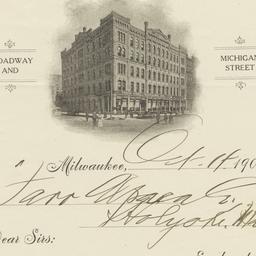 OADWAY
AND
MICHIGAN
STREET
Milwaukee, Oct. 14, 190
Farr Alpaca Co
Holyoke, Ma
ear Sirs: